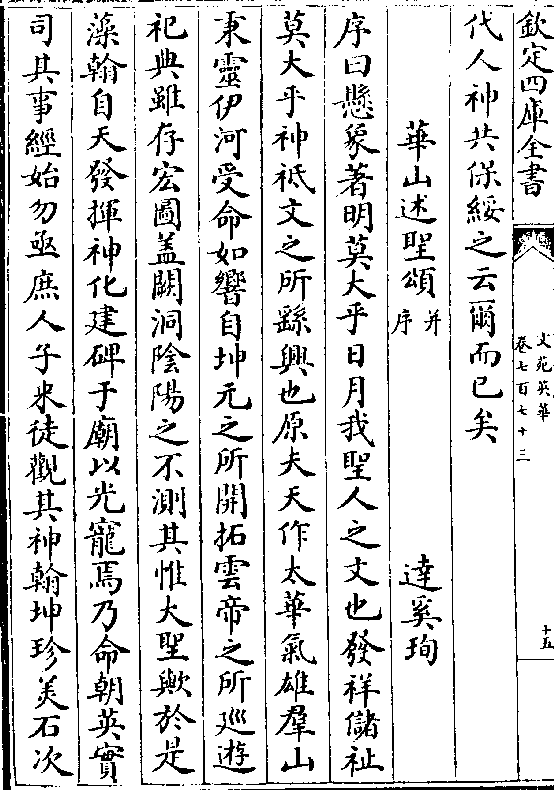 欽定四庫全書
文苑英華
卷七百七十三
十五
代人神共保綏之云爾而已矣
華山述聖頌并序
達奚珣
序曰懸象著明莫大乎日月我聖人之文也發祥儲祉
莫大乎神祗文之所繇興也原夫天作太華氣雄羣山
秉靈伊河受命如響自坤元之所開拓雲帝之所廵遊
祀典雖存宏圖盖闕洞陰陽之不測其惟大聖歟於是
藻翰自天發揮神化建碑于廟以光寵焉乃命朝英實
司其事經始勿亟庶人子來徒觀其神翰坤珍美石次